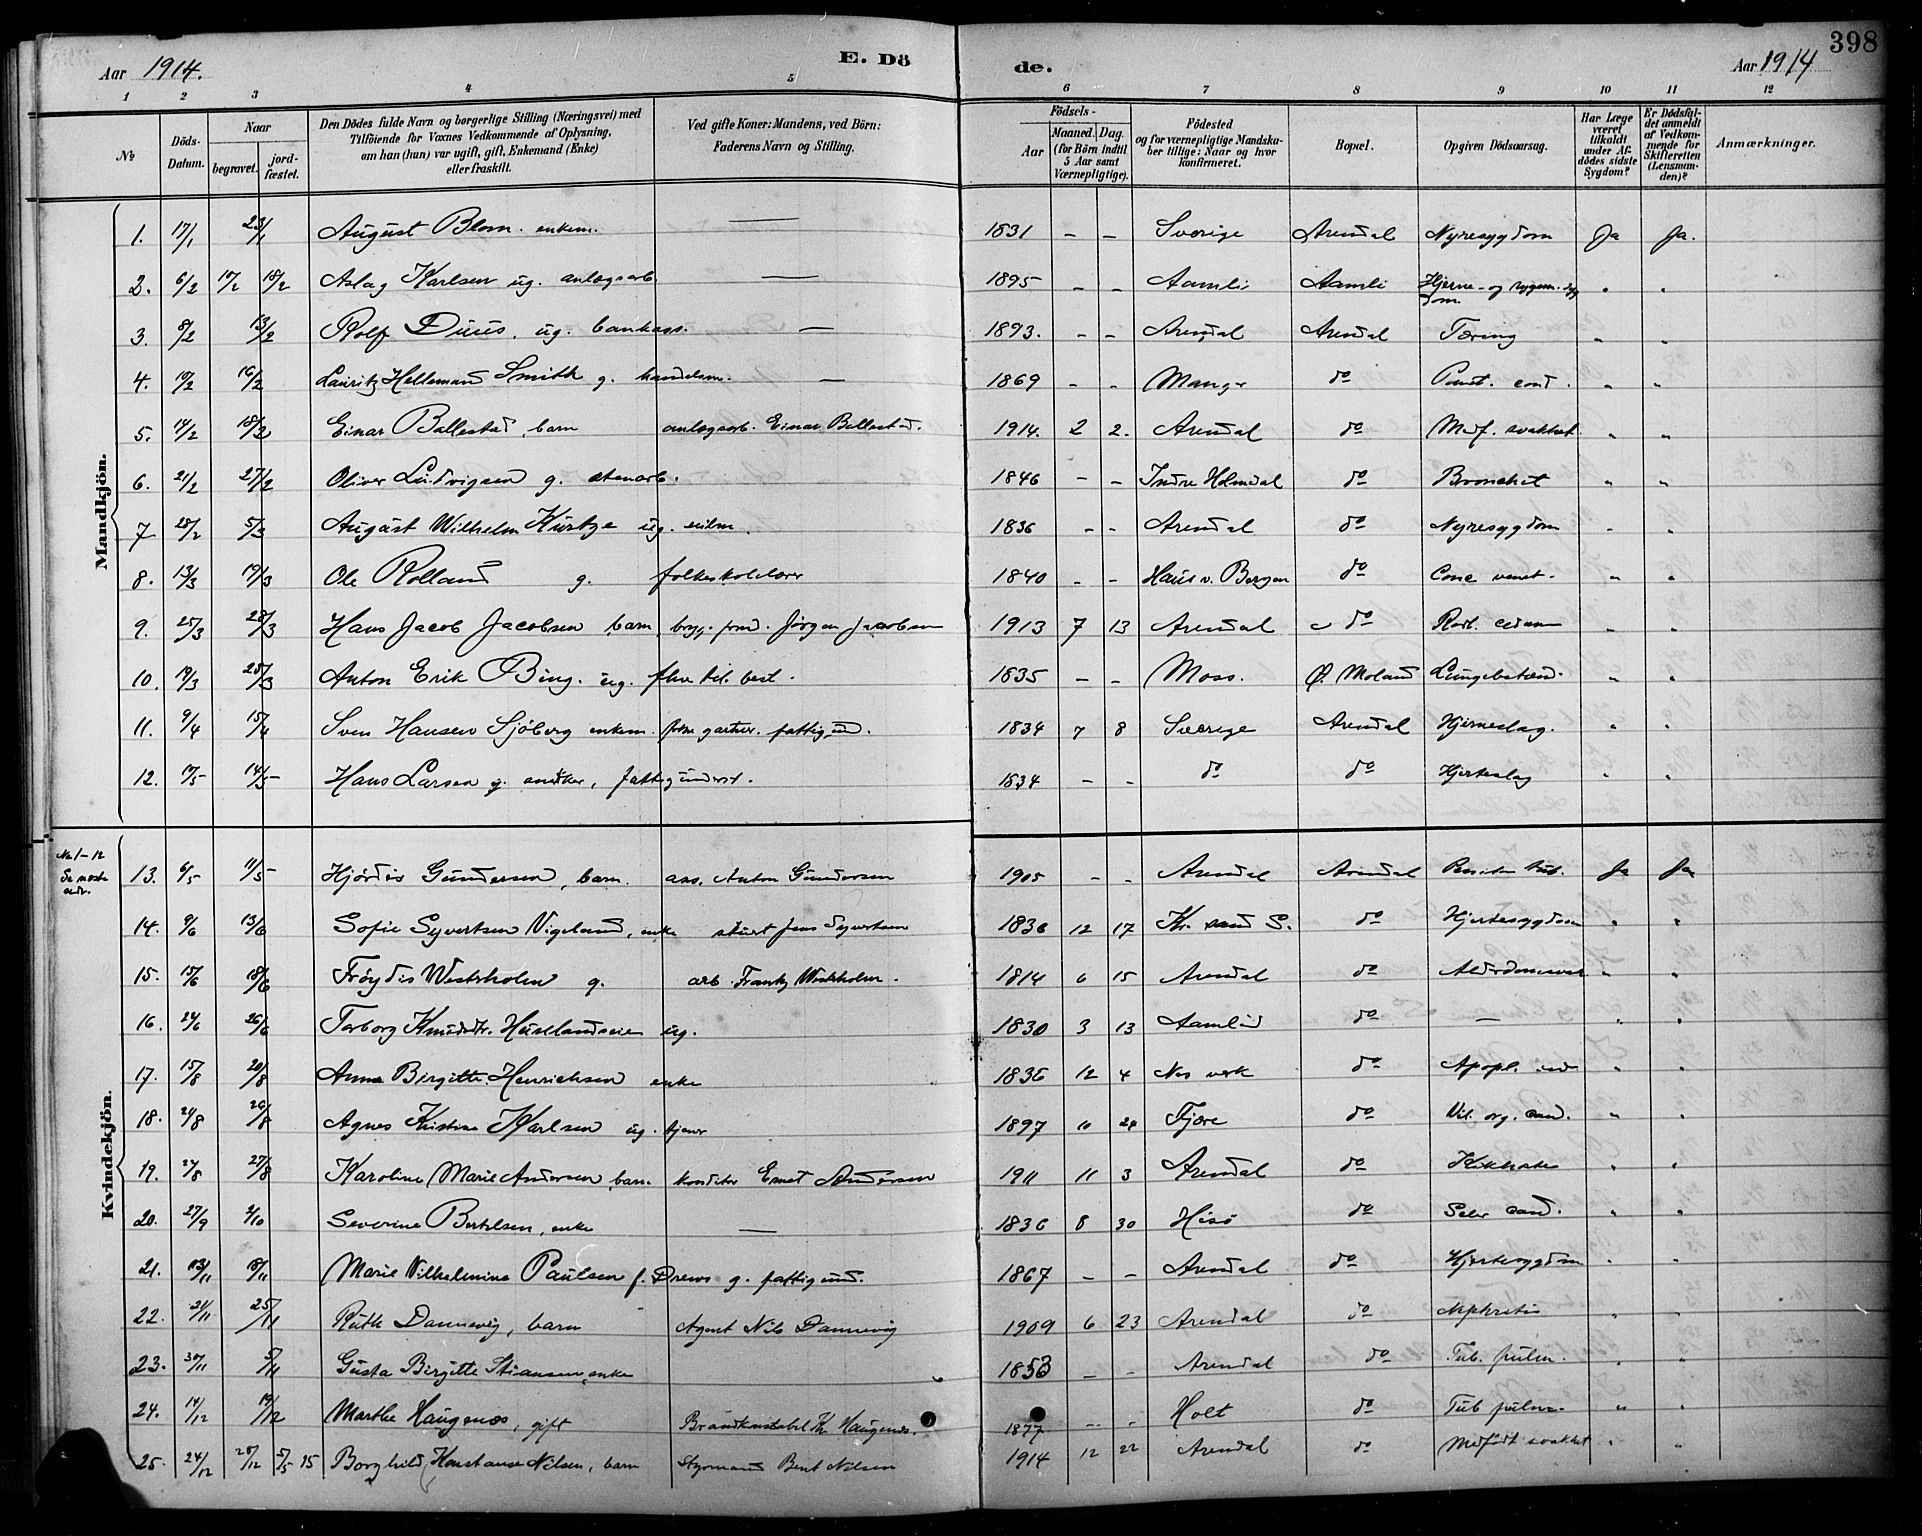 398
Aar 1914. E. Dö de. Aar 1914
1 2 3 4 5 6 7 8 9 10 11 12
№ Döds-Datum. Naar begravet. jord-fæstet. Den Dödes fulde Navn og borgerlige Stilling (Næringsvei) med Tilföiende for Voxnes Vedkommende af Oplysning, om han (hun) var ugift, gift, Enkemand (Enke) eller fraskilt. Ved gifte Koner: Mandens, ved Börn: Faderens Navn og Stilling. Födsels- Aar Maaned. Dag. (for Börn indtil 5 Aar samt Værnepligtige). Födested og for værnepligtige Mandska-ber tillige: Naar og hvor konfirmeret. Bopæl. Opgiven Dödsaarsag. Har Læge været tilkaldt under Af-dödes sidste Sygdom? Er Dödsfal-det anmeldt af Vedkom-mende for Skifteretten (Lensman-den)? Anmærkninger.
Mandkjön.
1. 17/1 23/1 August Blom. enkem. — 1831 - - Sverige Arendal Nyresygdom Ja Ja.
2. 6/2 17/2 18/2 Aslag Karlsen ug. anlægsarb — 1895 - - Aamli Aamli Hjerne- og rygm. syg dom " "
3. 8/2 13/2 Rolf Duus, ug. bankass. — 1893. - - Arendal Arendal Tæring " "
4. 10/2 16/2 Lauritz Hellemand Smith g. handelsm. — 1869 - - Manger do " "
5. 14/2 18/2 Einar Ballestad, barn anlægsarb. Einar Ballestad. 1914. 2 2. Arendal do Medf. svakhet " "
6. 21/2 27/2 Oliver Ludvigsen g. stenarb. 1846 - - Indre Holmdal do Bronchit " "
7 28/2 5/3 August Wilhelm Kurtze ug. 1836 - - Arendal do Nyresygdom " "
8. 13/3 19/3 Ole Rolland g. folkeskolelærer 1840 - - Haus v. Bergen do Canc. " "
9. 25/3 28/3 Hans Jacob Jacobsen barn, bryg. Jørgen Jacobsen 1913 7 13 Arendal do " "
10. 19/3 25/3 Anton Erik Bing. ug. fhv. best. 1835 - - Moss. Ø. Moland Lungebetænd. " "
11. 9/4 15/4 Sven Hansen Sjöberg enkem. gartner. fattigund. 1834 7 8 Sverige Arendal Hjerneslag. " "
12. 14/5 Hans Larsen g. snedker, fattigunderst. 1834 - - do do Hjerteslag " "
Kvindekjön.
No. 1-12 Se næste
13. 6/5 11/5 Hjördis Gundersen, barn. ass. Anton Gundersen 1905 - - Arendal Arendal Ja Ja
14. 9/6 13/6 Sofie Syvertsen Vigeland, enke Jens Syvertsen 1836 12 17 Kr. sand S. do Hjertesygdom " "
15. 15/6 18/6 Fröydis Westrholm g. arb. Frantz Westrholm. 1814 6 15 Arendal do " "
16. 24/6 26/6 Torborg Knudsdtr. ug. 1830 3 13 Aamli do — " "
17. 15/8 20/8 Anna Birgitte Henrichsen enke 1836 12 4 Nes verk do Apopl. " "
18. 21/8 26/8 Agnes Kristine Karlsen ug. tjener 1897 10 24 Fjære do Vit. org. cord. " "
19. 27/8 Karoline Marie Andersen, barn. konditor Ernst Andersen 1911 11 3 Arendal do Kikhoste " "
20. 27/9 2/10 Severine Bertelsen, enke — 1836 8 30 Hisö do " "
21. 13/11 18/11 Marie Vilhelmine Paulsen f. Drews g. fattigund. 1867 - - Arendal do Hjertesygdom " "
22. 21/11 25/11 Ruth Dannevig, barn Agent Nils Dannevig 1909 6 23 Arendal do Nephritis " "
23. 30/11 Gusta Birgitte Stiansen, enke 1853 - - Arendal do Tub. pulm. " "
24. 14/12 19/12 Marthe Haugenæs, gift Brandkonstabel Kr. Haugenæs. 1877 - - Holt do Tub pulm. " "
25. 24/12 28/12 5/5 15 Borghild Konstanse Nilsen, barn Styrmand Bent Nilsen 1914 12 22 Arendal do Medfödt svakhet " "